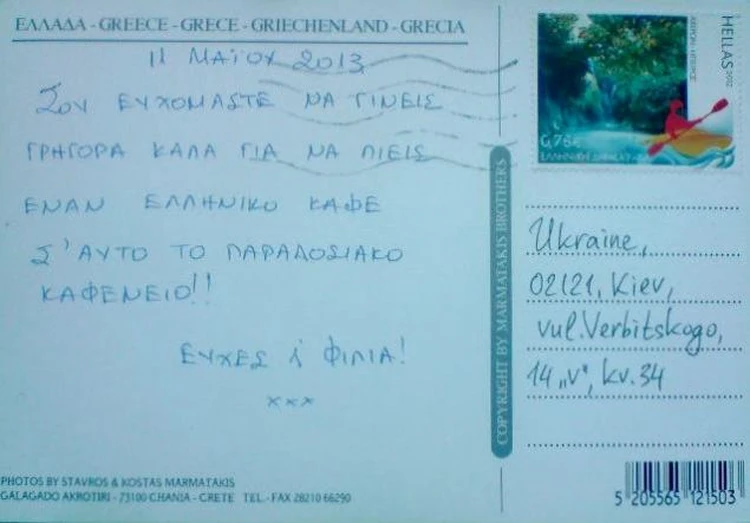 ΕΛΛΑΔΑ - GREECE - GRECE - GRIECHENLAND - GRECIA
11 ΜΑΪΟΥ 2013
ΣΟΥ ΕΥΧΟΜΑSTE ΝΑ ΓΙΝΕΙΣ
ΓΡΗΓΟΡΑ ΚΑΛΑ ΓΙΑ ΝΑ ΠΙΕΙΣ
ΕΝΑΝ ΕΛΛΗΝΙΚΟ ΚΑΦΕ
Σ'ΑΥΤΟ ΤΟ ΠΑΡΑΔΟΣΙΑΚΟ
ΚΑΦΕΝΕΙΟ!!
ΕΥΧΕΣ ΦΙΛΙΑ!
xxx
PHOTOS BY STAVROS & KOSTAS MARMATAKIS
GALAGADO AKROTIRI - 73100 CHANIA - CRETE TEL.-FAX 28210 66290
COPYRIGHT BY MARMATAKIS BROTHERS
HELLAS 2012
0,76€
Ukraine,
02121, Kiev,
vul. Verbitskogo,
14 „V", kv. 34
5 205565 121503